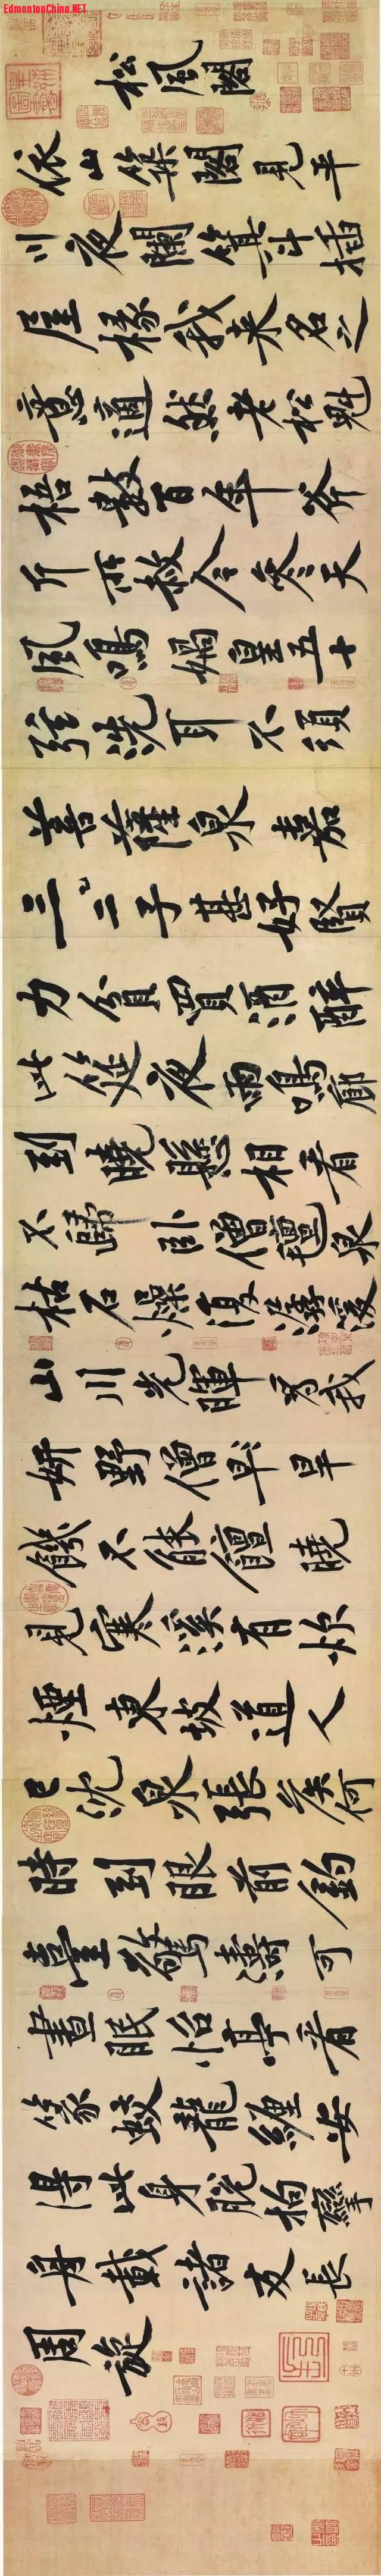 EdmontonChina.NET
松風閣
依山築閣見平
川夜闌箕斗插
屋椽我來名之
意適然老松魁
梧數百年斧
斤所赦今參天
風鳴媧皇五十
弦洗耳不須
菩薩泉嘉
三二子甚好賢
力貧買酒醉
此筵夜雨鳴廊
到曉懸相看
不歸臥僧氈泉
枯石燥復潺湲
山川光暉為我
妍野僧旱早
饑不能饘曉
見寒溪有炊
煙東坡道人
已沈泉張侯何
時到眼前釣
臺驚濤可
晝眠怡亭看
篆蛟龍纏安
得此身脫拘攣
舟載諸友長
周旋